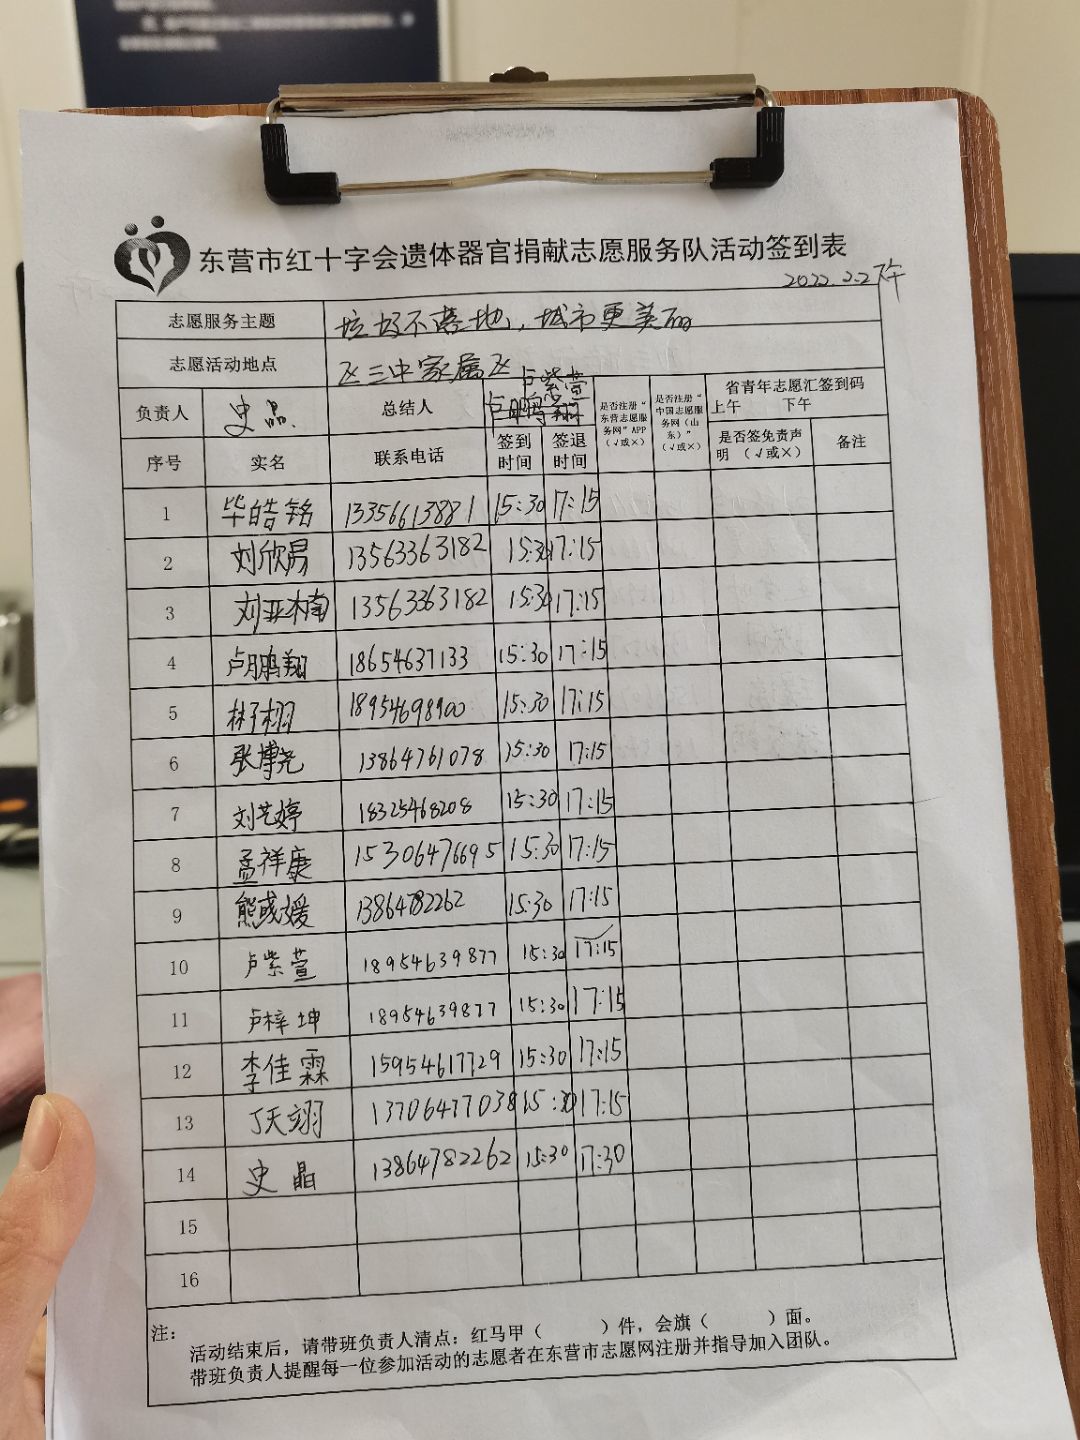 东营市红十字会遗体器官捐献志愿服务队活动签到表
2022.2.2下午
志愿服务主题 垃圾不落地,城市更美丽
志愿活动地点 区三中家属区
负责人 史晶 总结人 卢紫萱 卢鹏翔 是否注册“东营志愿服务网”APP(√或×) 是否注册“中国志愿服务网(山东)”(√或×) 省青年志愿汇签到码 上午 下午
序号 实名 联系电话 签到时间 签退时间 是否签免责声明(√或×) 备注
1 毕皓铭 13356613881 15:30 17:15
2 刘欣易 13563363182 15:30 17:15
3 刘亚楠 13563363182 15:30 17:15
4 卢鹏翔 18654637133 15:30 17:15
5 林子栩 18954698900 15:30 17:15
6 张博尧 13864761078 15:30 17:15
7 刘艺婷 18325468208 15:30 17:15
8 孟祥康 15306476695 15:30 17:15
9 熊彧媛 13864782262 15:30 17:15
10 卢紫萱 18954639877 15:30 17:15
11 卢梓坤 18954639877 15:30 17:15
12 李佳霖 15954617729 15:30 17:15
13 丁天翊 13706477038 15:30 17:15
14 史晶 13864782262 15:30 17:30
15
16
注:
活动结束后,请带班负责人清点:红马甲( )件,会旗( )面。
带班负责人提醒每一位参加活动的志愿者在东营市志愿网注册并指导加入团队。